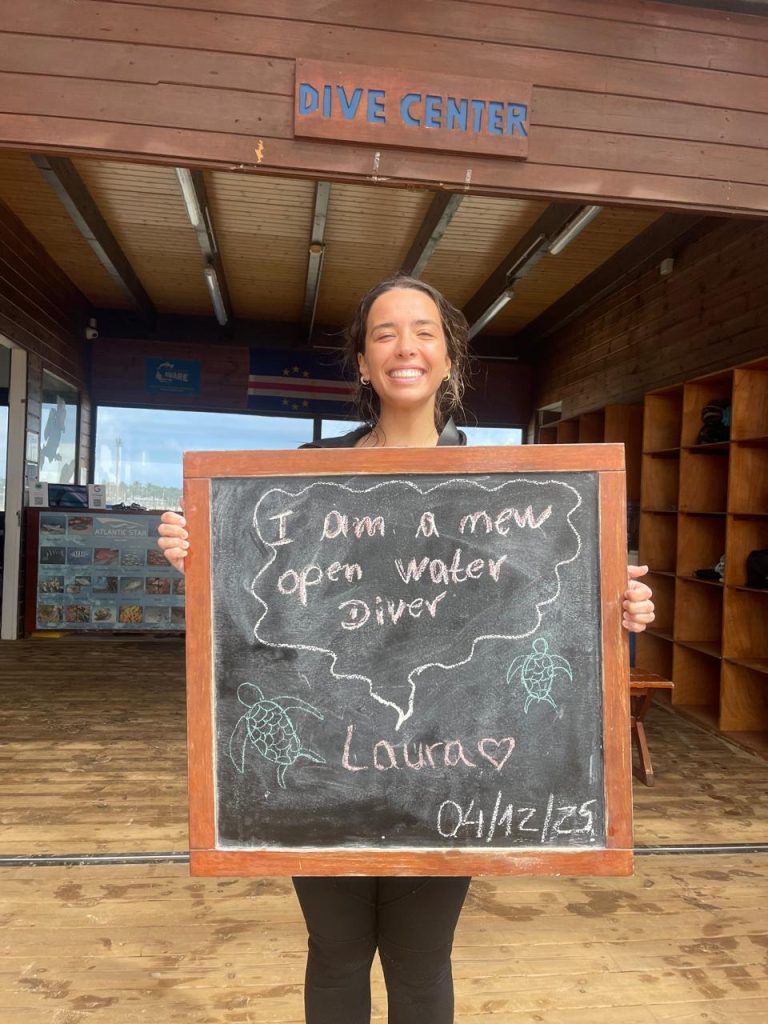 DIVE CENTER
AWARE
ATLANTIC STAR
I am a new
open water
Diver
Laura
04/12/25